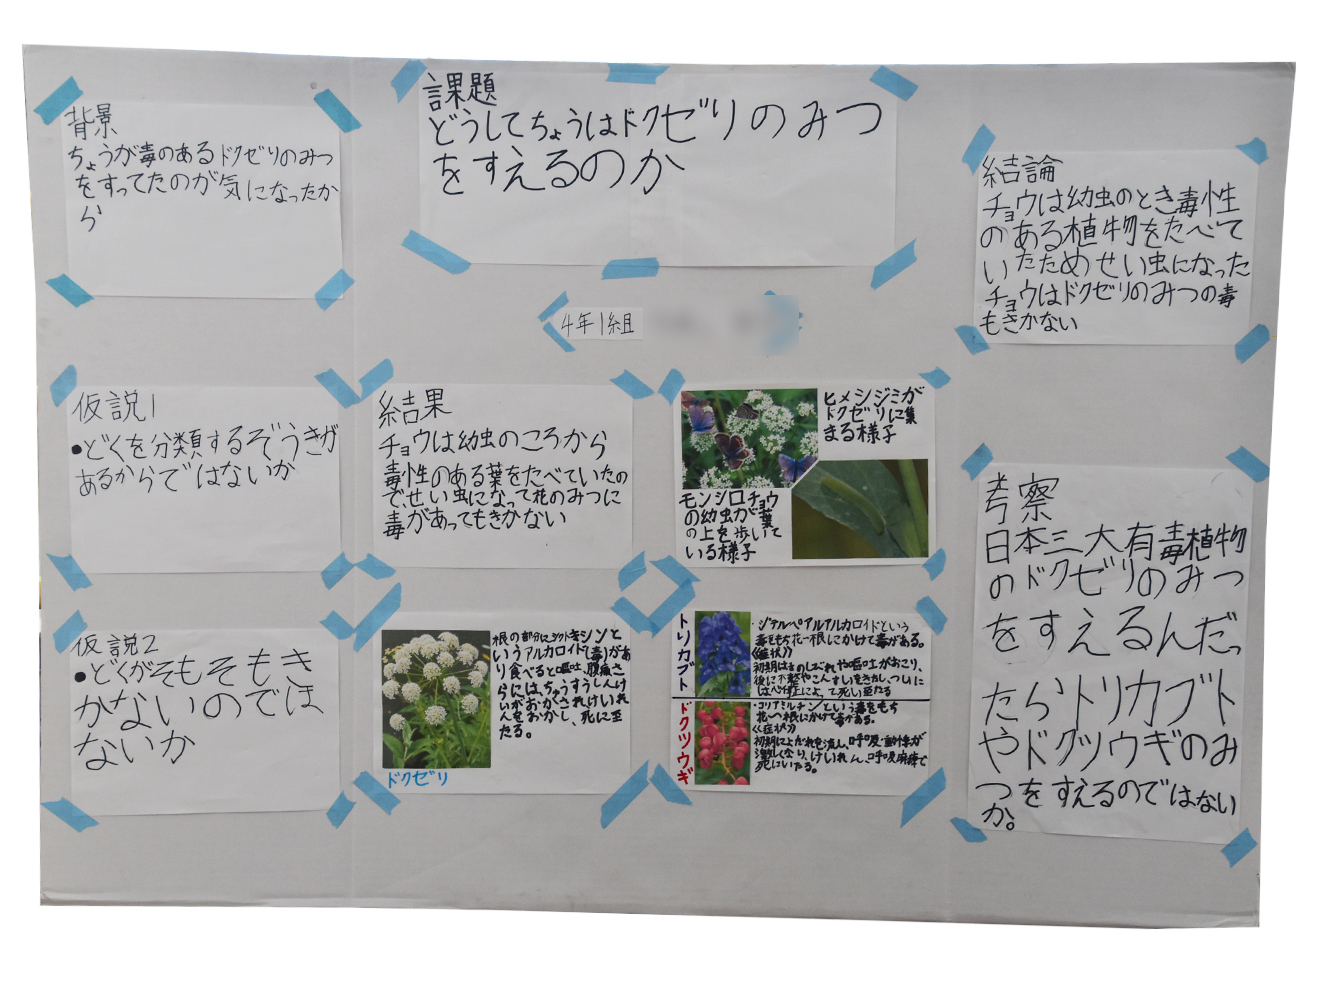 課題
どうしてちょうはドクゼリのみつ
をすえるのか
背景
ちょうが毒のあるドクゼリのみつ
をすってたのが気になったか
ら
4年1組
仮説1
●どくを分類するぞうきが
あるからではないか
仮説2
●どくがそもそもき
かないのでは
ないか
結果
チョウは幼虫のころから
毒性のある葉をたべていたの
で、せい虫になって花のみつに
毒があってもきかない
ヒメシジミが
ドクゼリに集
まる様子
モンシロチョウ
の幼虫が葉
の上を歩いて
いる様子
根の部分にシクトキシンと
いうアルカロイド(毒)があ
り食べると嘔吐、腹痛さ
らには、ちゅうすうしんけ
いがおかされけいれ
んをおかし、死に至
たる。
ドクゼリ
トリカブト
毒をもち花〜根にかけて毒がある。
《症状》
初期は
のしびれや嘔吐がおこり、
後に不整やこんすいをきたし、ついに
によって死い至たる
ドクツウギ
・コリアミルチンという毒をもち
花〜根にかけて毒がある。
《症状》
初期によだれを流し、呼吸・動作が
激しくなり、けいれん、呼吸麻痺で
死にいたる。
結論
チョウは幼虫のとき毒性
のある植物をたべて
いたためせい虫になった
チョウはドクゼリのみつの毒
もきかない
考察
日本三大有毒植物
のドクゼリのみつ
をすえるんだっ
たらトリカブト
やドクツウギのみ
つをすえるのではない
か。